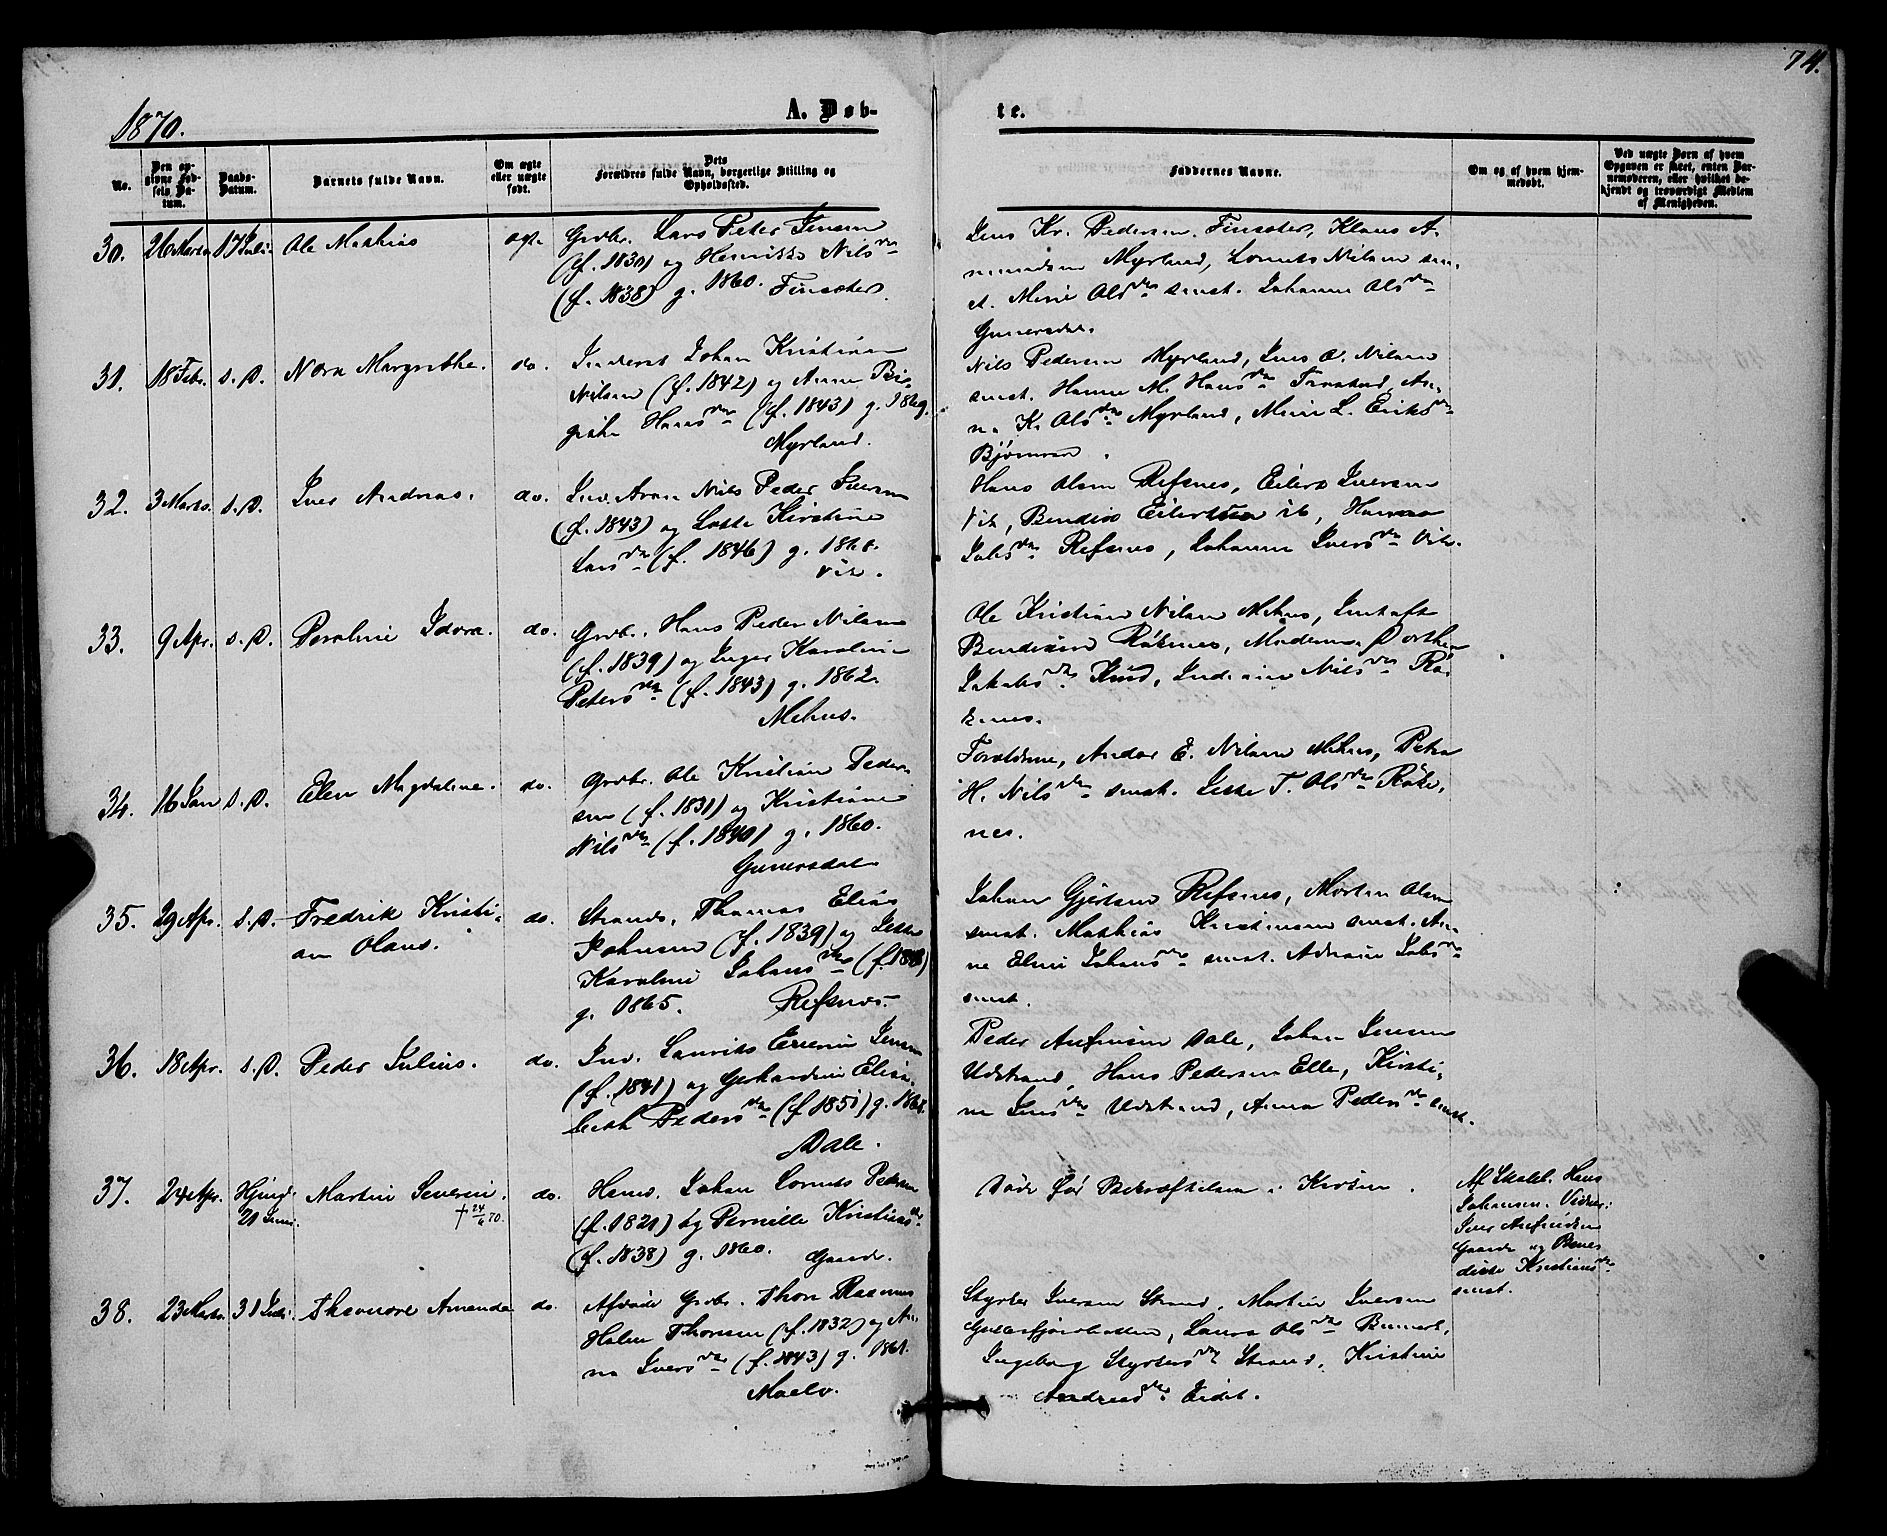 74.
1870.
A. Døb-
te.
No.
Den op-
givne Fød-
sels Da-
tum.
Daabs-
Datum.
Barnets fulde Navn.
Om ægte
eller uægte
født.
Dets
Forældres fulde Navn, borgerlige Stilling og
Opholdssted.
Faddernes Navne.
Om og af hvem hjem-
medøbt.
Ved uægte Børn af hvem
Opgaven er sket, enten Bar-
nemoderen, eller hvilket be-
kjendt og troværdigt Medlem
af Menigheden.
30. 26 Marts 17 Juli Ole Mathias ægt.
Grdbr. Lars Peter Jensen
(f. 1830) og Henrikke Nilsdtr
(f. 1838) g. 1860. Finsæter.
Jens Kr. Pedersen Finsæter, Klaus A-
mundsen Myrland, Lornts Nilsen sm.
st. Olsdtr smst. Johanna Olsdtr
Gunersdal.
31. 18 Febr. s. D. Nora Margrethe. do.
Inderst Johan Kristian
Nilsen (f. 1842) og Anna Bir-
gitte Hansdtr (f. 1843) g. 1869.
Myrland.
Nils Pedersen Myrland, Jens O. Nilsen
smst. Hanna M. Hansdtr An-
na K. Olsdtr Myrland, L. Eriksdtr
32. 3 Marts. s. D. Iver Andreas. do.
Ind. Nils Peder Iversen
(f. 1843) og Kirstine
Larsdtr (f. 1846) g.
Vik.
Hans Olsen Refsnes, Eilert Iversen
Vik, Bendix Eilertsen ib, Hanna
Refsnes, Johanna Iversdtr Vik.
33. 9 Apr. s. D. Peroline Idora. do.
Grdbr. Hans Peder Nilsen
(f. 1839) og Inger Karoline
Petersdtr (f. 1843) g. 1862.
Mehus.
Ole Kristian Nilsen Mehus,
Bendixsen Røkenes, Madame Dorthea
Jakobsdtr Nilsdtr Rø-
kenes.
34. 16 Jan s. D. Elen Magdalene. do.
Grdbr. Ole Kristian Peder-
sen (f. 1831) og Kristiane
Nilsdtr (f. 1840) g. 1860.
Gunersdal
Forældrene, Andor E. Nilsen Mehus, Petra
H. Nilsdtr smst. T. Olsdtr Røke-
nes.
35. 29 Apr. s. D. Fredrik Kristi-
an Olaus. do.
Strands. Thomas Elias
Johnsen (f. 1839) og
Karoline Johansdtr
g. 1865. Refsnes.
Johan Gjertsen Refsnes, Morten Olsen
smst. Mathias Kristensen smst. An-
ne Johansdtr smst. Adriane
smst.
36. 18 Apr. s. D. Peder Julius. do.
Ind. Laurits Jensen
(f. 1841) og Gerhardine Elisa-
beth Pedersdtr (f. 1851) g.
Dale.
Peder Anfinsen Dale, Johan Jensen
Udstrand, Hans Pedersen Elle, Kirsti-
ne Jensdtr Udstrand, Anna Pedersdtr smst.
37. 24 Apr. Hjemd.
21 Juni Martin Severin.
† 24/6 70. do.
Johan Lornts Pedersen
(f. 1821) og Pernille Kristiansdtr
(f. 1838) g. 1860. Gaarde.
Døde før Bekræftelsen i Kirken.
Af Skolel. Hans
Johansen. Vidner:
Iver Anfindsen
Gaarde og Bene-
dicte Kristiansdtr
smst.
38. 23 Marts 31 Juli Thevnore Amanda do.
Afdøde Grdbr. Thor Rasmus
Holm Thorsen (f. 1832) og An-
na Iversdtr (f. 1843) g. 1861.
Maelv.
Styrker Iversen Strand, Martin Iversen
Laura Olsdtr
Ingeborg Styrkersdtr Strand, Kristine
Andreasdtr Eidet.